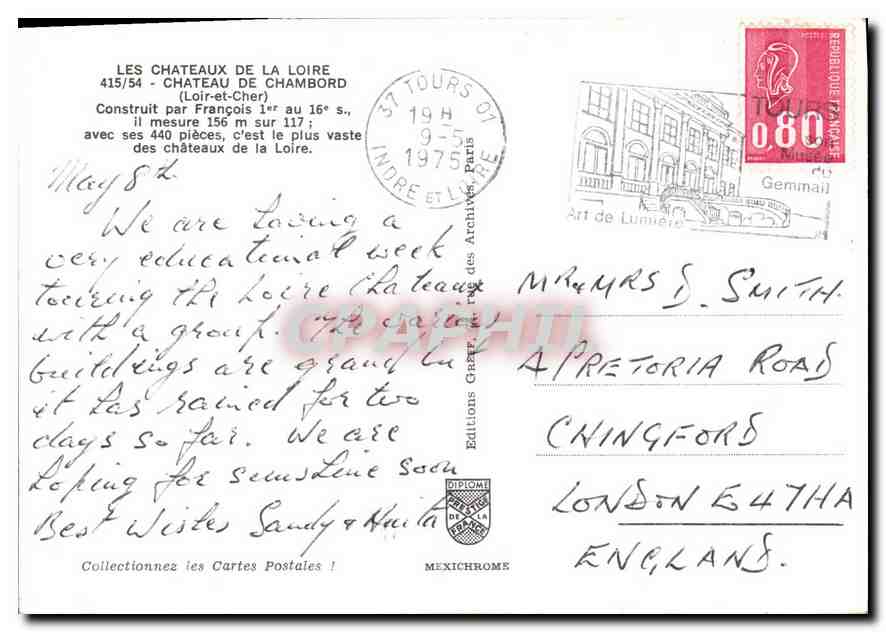 LES CHATEAUX DE LA LOIRE
415/54 - CHATEAU DE CHAMBORD
(Loir-et-Cher)
Construit par François 1er au 16e s.,
il mesure 156 m sur 117 ;
avec ses 440 pièces, c'est le plus vaste
des châteaux de la Loire.
37 TOURS 01
19 H
9-5
1975
INDRE ET LOIRE
Art de Lumière
TOURS
son
Musée
du
Gemmail
POSTES
REPUBLIQUE FRANÇAISE
0,80
May 8th
We are having a
very educational week
touring the Loire Chateaux
with a group. The various
buildings are grand but
it has rained for two
days so far. We are
hoping for sunshine soon
Best Wishes Sandy &
Editions GREFF, rue des Archives, Paris
Mr & MRS D. SMITH.
PRETORIA ROAD
CHINGFORD
LONDON E4 7HA
ENGLAND.
DIPLOME
PRESTIGE
DE LA
FRANCE
Collectionnez les Cartes Postales !
MEXICHROME
CPAPHIL